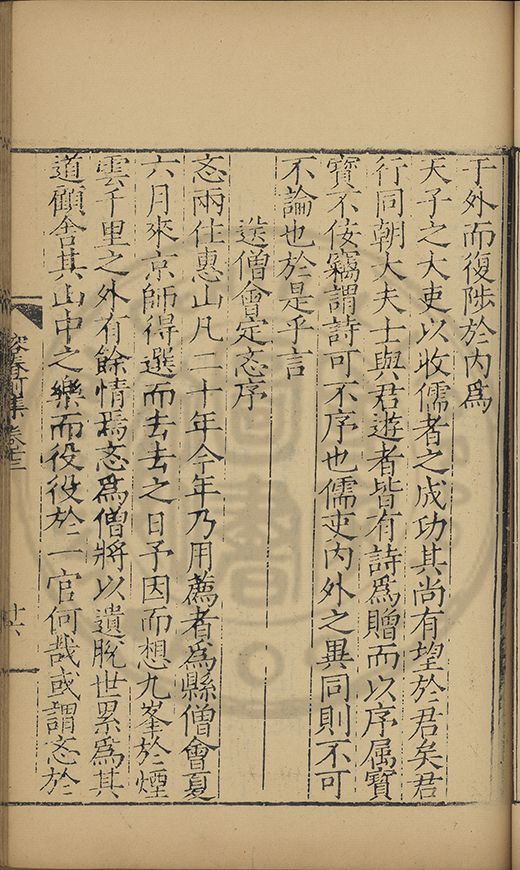 于外而復陟於内爲
天子之大吏以收儒者之成功其尚有望於君矣君
行同朝大夫士與君遊者皆有詩爲贈而以序属寳
寳不佞竊謂詩可不序也儒吏内外之異同則不可
不論也於是乎言
送僧會定忞序
忞兩住惠山凡二十年今年乃用薦者爲縣僧會夏
六月來京師得選而去去之日予因而想九峯於煙
雲千里之外有餘情焉忞爲僧將以遺脫世累爲其
道顧舍其山中之樂而役役於一官何哉或謂忞於